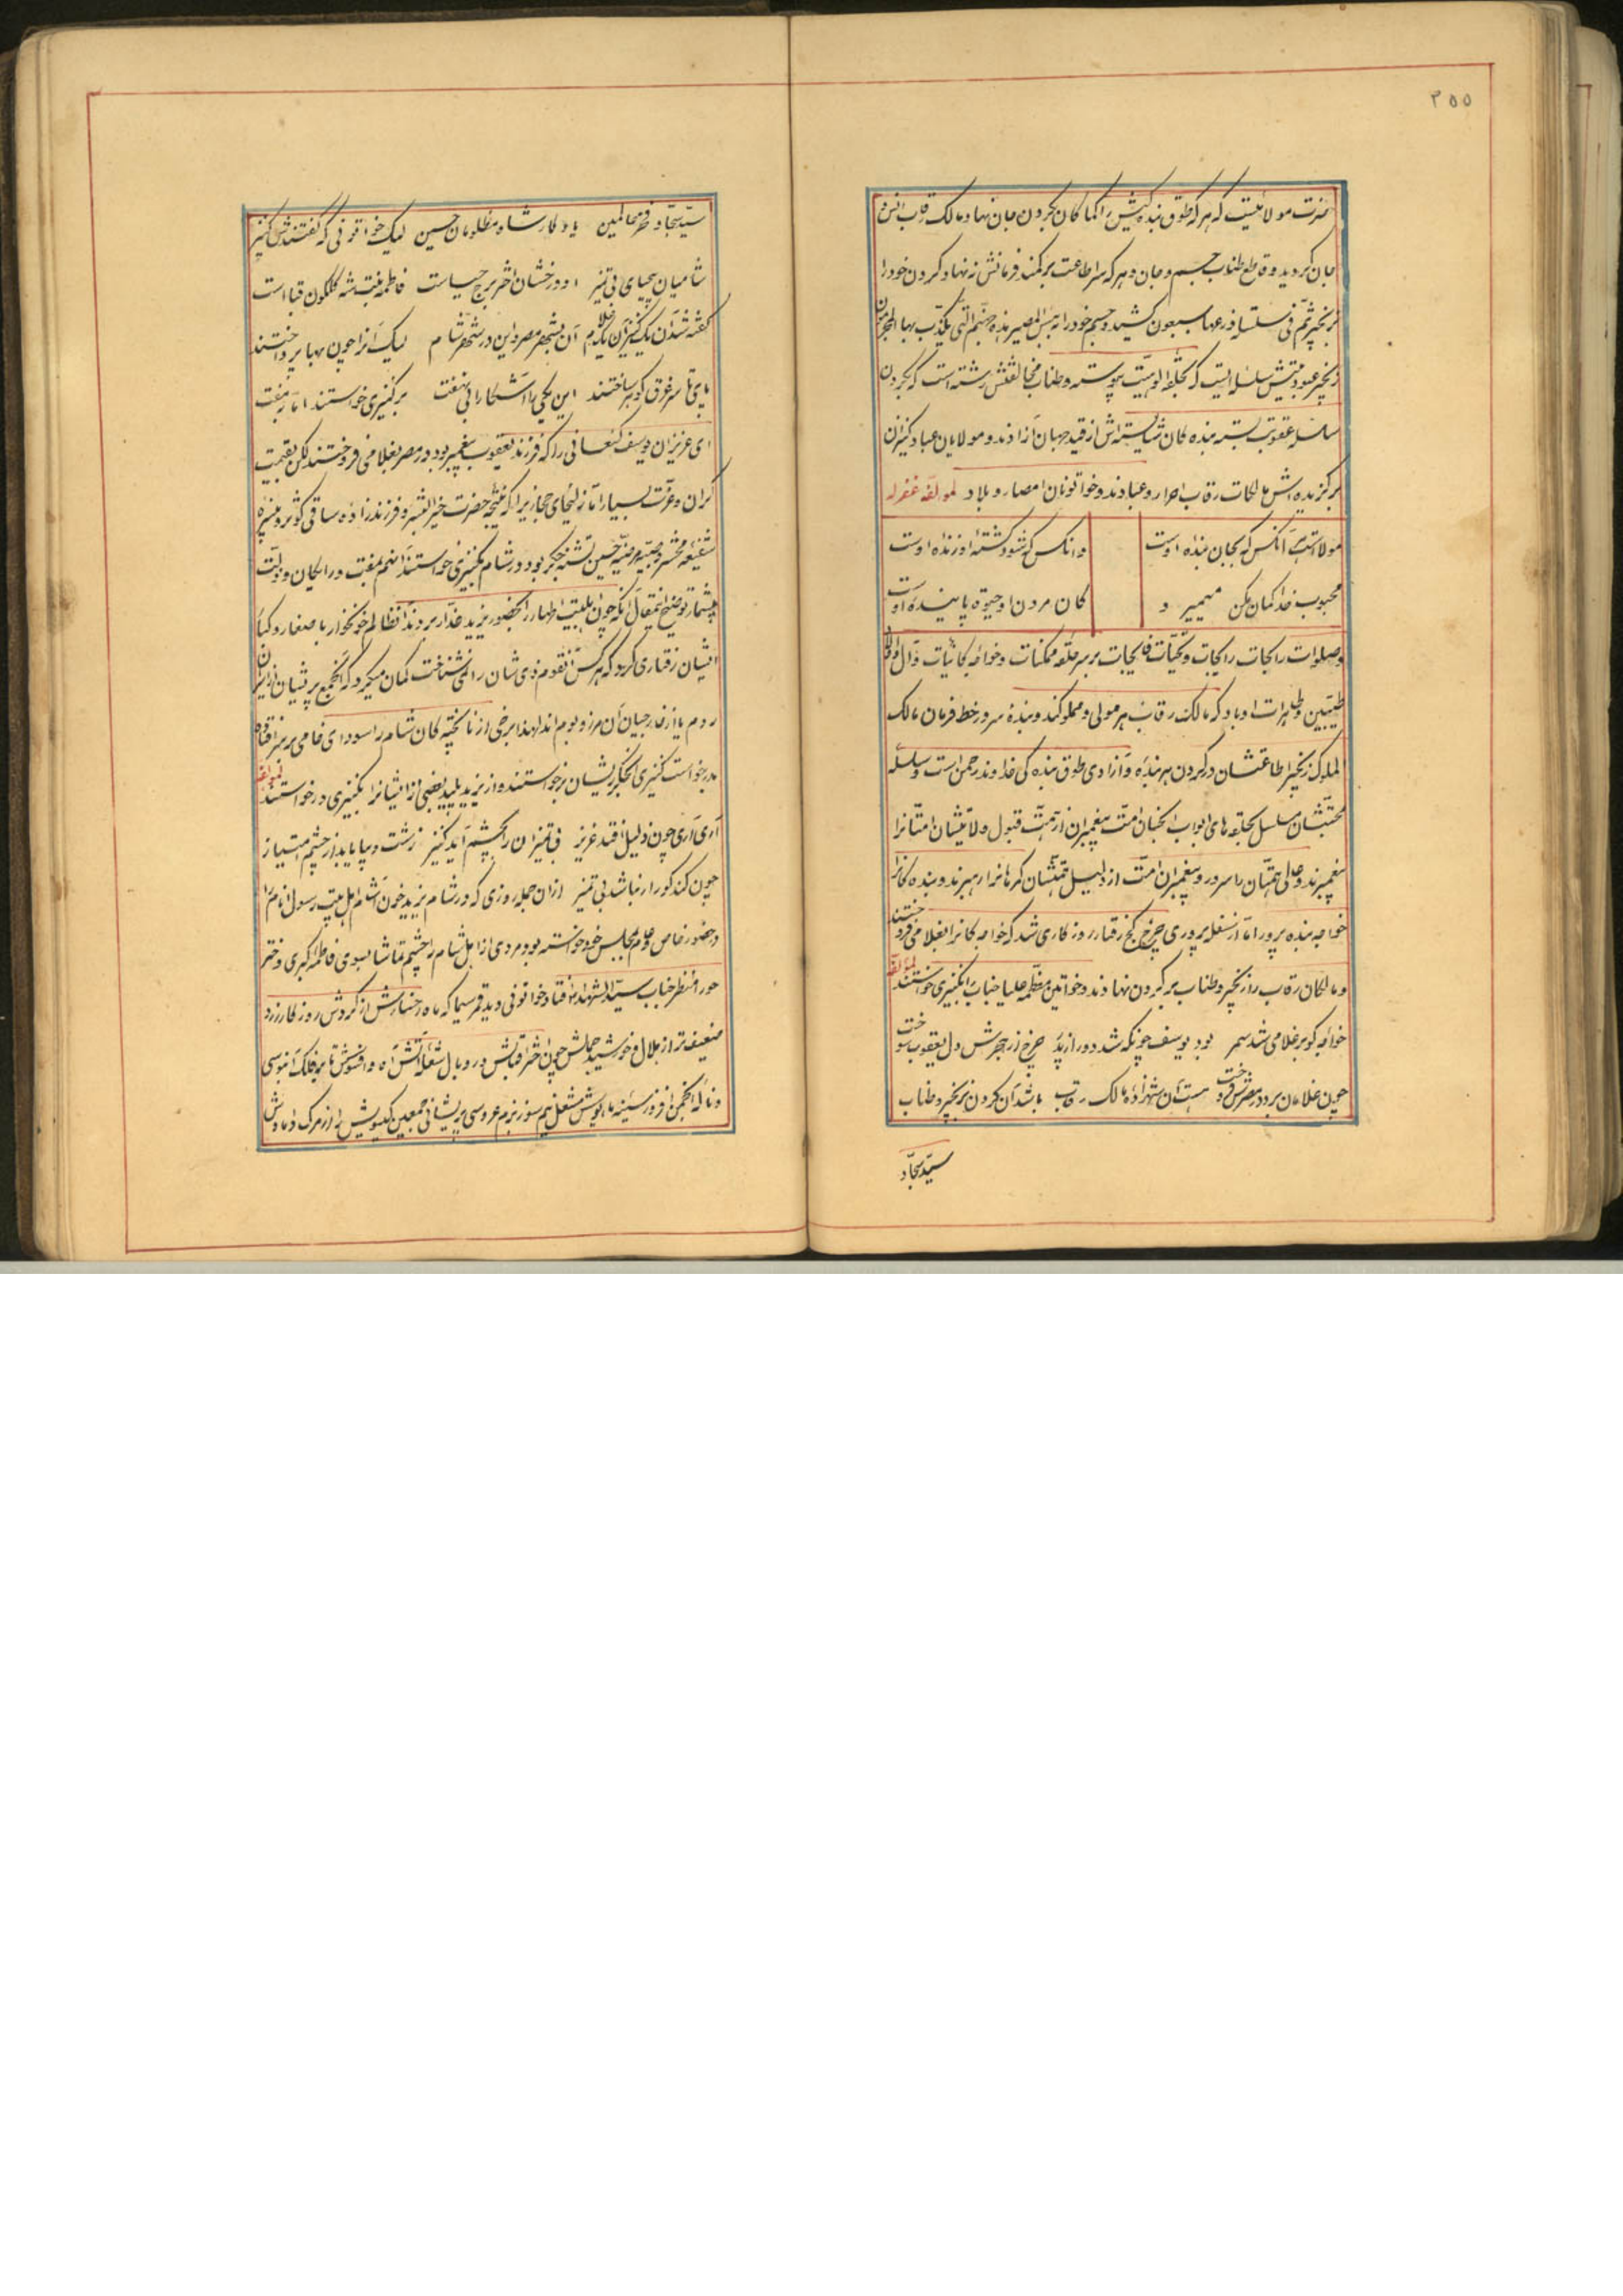 ۲۵۵
حضرت مولائیست که هر که طوق بندگیش را کماکان بگردن جان نهاد مالک رقاب انس و
جان گردید و قاطع طناب جسم و جان و هر که سر اطاعت بر کمند فرمانش ننهاد گردن خود را
بزنجیر ثم فی سلسلة ذرعها سبعون کشید و جسم خود را به بئس المصیر هذه جهنم التی یکذب بها المجرمون
زنجیر عبودیتش سلسله ایست که بحلقه الوهیت پیوسته و طناب مخالفتش رشته است که بگردن
سلسله عقوبت بسته بنده کان شایسته اش از قید جهان آزادند و مولایان عباد کنیزان
برگزیده اش مالکات رقاب احرار و عبادند و خواتونان امصار و بلاد لمولفه غفرله
مولاست آنکس که بجان بنده اوست
وانکس که شود کشته او زنده اوست
محبوب خدا گمان مکن میمیرد
کان مردن او حیوة پاینده اوست
و صلوات رایجات و تحیات فایحات بر سر حلقه ممکنات و خواجه کائنات و آل
طیبین و طاهرات او باد که مالک رقاب هر مولی و مملوکند و بنده سر در خط فرمان مالک
الملوک زنجیر اطاعتشان در گردن هر بنده و آزادی طوق بنده گی خداوند رحمن است و سلسله
محبتشان مسلسل بحلقه های ابواب الجنان امت پیغمبران از تهمت قبول ولایتشان امتانرا
پیغمبرند و عالی همتان را سرور و پیغمبران امت از دلیل همتشان گمرهانرا رهبرند و بنده کانرا
خواجه بنده پرور اما از سفله پروری چرخ کج رفتار روزگاری شد که خواجه کانرا بغلامی فروختند
و مالکان رقاب را زنجیر و طناب بر گردن نهادند و خواتین معظمه علیا جناب را بکنیزی خواستند لمؤلفه
خواجه کو بر غلامی شد سمر بود یوسف چونکه شد دور از پدر چرخ از هجرش دل یعقوب سوخت
چون غلامان برد در مصرش فروخت هست آن شهزاده مالک رقاب باشد آن گردن بزنجیر و طناب
سید سجاد
سید سجاد و فخر عالمین یادگار شاه مظلومان حسین لیک خواتونی که گفتندش کنیز
شامیان بیحیای بی تمیز او درخشان اختر برج حیاست فاطمه بنت شه گلگون قباست
گفته شد آن یک کنیز آن یک غلام آن بشهر مصر و این در شهر شام لیک آنرا چون بها پرداختند
پای تا سر غرق گوهر ساختند این یکی را آشکارا بی نهفت بر کنیزی خواستند اما ز مفت
ای عزیزان یوسف کنعانی را که فرزند یعقوب پیغمبر بود در مصر بغلامی فروختند لکن بقیمت
گران و عزت بسیار اما زلیخای حجازیرا که نتیجه حضرت خیر البشر و فرزند زاده ساقی کوثر و منیره
شفیعه محشر و صبیه مرضیه حسین تشنه جگر بود در شام بکنیزی خواستند آنهم بمفت و رایکان و بذلت
بیشمار توضیح این مقال آنکه چون اهلبیت اطهار را بحضور یزید غدار بردند آنظالم خونخوار با صغار و کبار
ایشان رفتاری کرد که هر کس آنقوم ذی شان را نمی شناخت گمان میکرد که آنجمع پریشان از اسیران
روم یا از خارجیان آن مرز و بومند لهذا برخی از ناپخته کان شام را سودای خامی بر سر افتاده
بدرخواست کنیزی آنجگر ریشان برخواستند از یزید پلید بعضی از ایشانرا بکنیزی درخواستند لمولفه
آری آری چون ذلیل افتد عزیز بی تمیزان را بچشم آید کنیز زشت و زیبا باید از چشم امتیاز
چون کند کور ار نباشد بی تمیز از آن جمله روزی که در شام یزید خون آشام اهل بیت رسول انام را
در حضور خاص و عام بمجلس خود خواسته بود مردی از اهل شام را چشم تماشا بسوی فاطمه کبری دختر
حور امنظر جناب سید الشهدا افتاد خواتونی دید قمر سیما که ماه رخسارش از گردش روزگار زرد
ضعیف تر از هلال و خورشید جمالش چون اختر اقبالش در وبال شعله آتش آه و افسوسش تا بفلک آبنوسی
و ناله انجمن افروز سینه مایوسش مشعل نیم سوز بزم عروسی پریشانی جمعیت گیسویش از مرگ دامادش